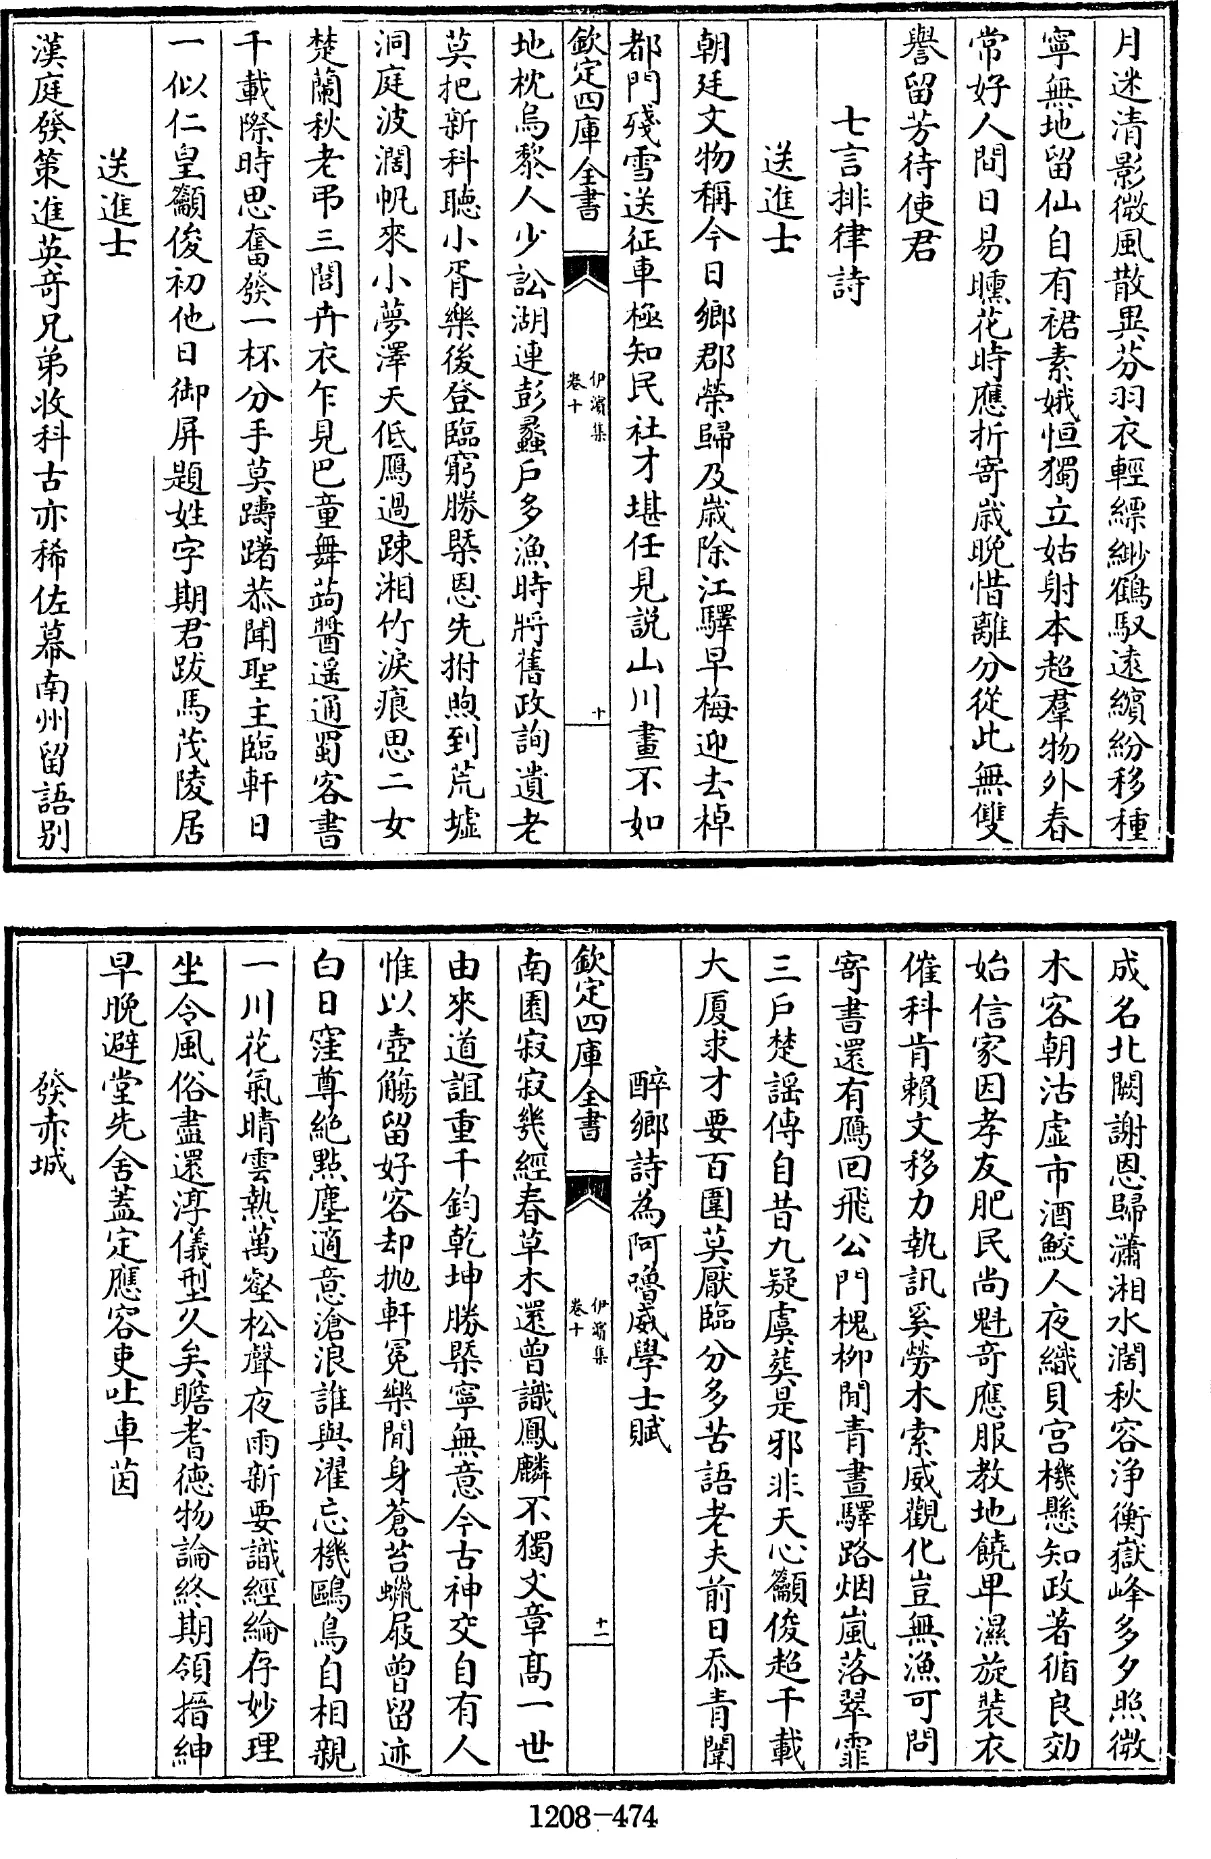 月迷清影微風散異芬羽衣輕縹緲鶴馭遠繽紛移種
寧無地留仙自有裙素娥恒獨立姑射本超羣物外春
常好人間日易曛花時應折寄嵗晩惜離分從此無雙
譽留芳待使君
七言排律詩
送進士
朝廷文物稱今日鄉郡榮歸及嵗除江驛早梅迎去棹
都門殘雪送征車極知民社才堪任見說山川畫不如
欽定四庫全書
伊濱集
卷十
十
地枕烏黎人少訟湖連彭蠡戶多漁時將舊政詢遺老
莫把新科聽小胥樂後登臨窮勝槩恩先拊煦到荒墟
洞庭波濶帆來小夢澤天低鴈過踈湘竹淚痕思二女
楚蘭秋老弔三閭卉衣乍見巴童舞蒟醬遥通蜀客書
千載際時思奮發一杯分手莫躊躇恭聞聖主臨軒日
一似仁皇籲俊初他日御屏題姓字期君跋馬茂陵居
送進士
漢庭發策進英奇兄弟收科古亦稀佐幕南州留語别
成名北闕謝恩歸瀟湘水濶秋容浄衡嶽峰多夕照微
木客朝沽虛市酒鮫人夜織貝宮機懸知政著循良効
始信家因孝友肥民尚魁奇應服教地饒卑濕旋裝衣
催科肯賴文移力執訊奚勞木索威觀化豈無漁可問
寄書還有鴈回飛公門槐栁閒青晝驛路烟嵐落翠霏
三戶楚謡傳自昔九疑虞葬是邪非天心籲俊超千載
大厦求才要百圍莫厭臨分多苦語老夫前日忝青闈
醉鄉詩為阿嚕威學士賦
欽定四庫全書
伊濱集
卷十
十一
南園寂寂幾經春草木還曾識鳳麟不獨文章髙一世
由來道誼重千鈞乾坤勝槩寧無意今古神交自有人
惟以壺觴留好客却抛軒冕樂閒身蒼苔蠟屐曾留迹
白日窪尊絶點塵適意滄浪誰與濯忘機鷗鳥自相親
一川花氣晴雲熱萬壑松聲夜雨新要識經綸存妙理
坐令風俗盡還淳儀型久矣瞻耆德物論終期領搢紳
早晩避堂先舍蓋定應容吏吐車茵
發赤城
1208-474